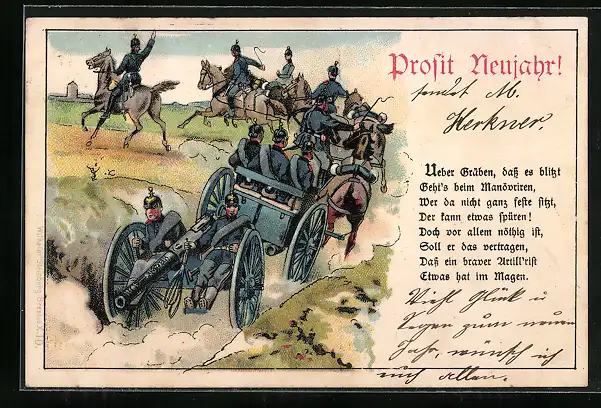 Prosit Neujahr!
sendet M.
Herkner.
Ueber Gräben, daß es blitzt
Geht's beim Manövriren,
Wer da nicht ganz feste sitzt,
Der kann etwas spüren!
Doch vor allem nöthig ist,
Soll er das vertragen,
Daß ein braver Artill'rist
Etwas hat im Magen.
Viehl Glück u
Segen zum neuen
Jahr, wünsch ich
euch allen.